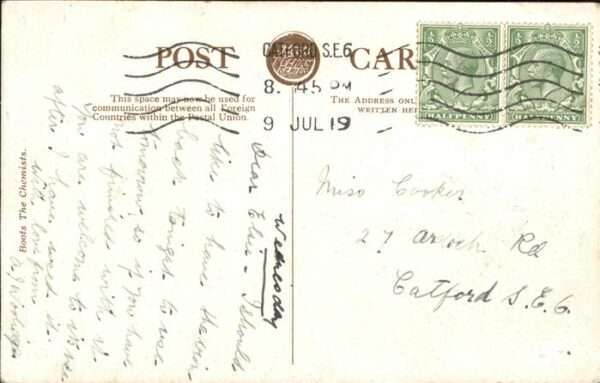 POST CAR
CATFORD S.E.6
8. 45 PM
9 JUL 19
This space may now be used for
communication between all Foreign
Countries within the Postal Union.
THE ADDRESS ONL
WRITTEN HER
HALFPENNY HALFPENNY
Boots The Chemists.
Wednesday
Dear Elsie - I should
like to have
back tonight to use
tomorrow, so if you have
not finished with it
you are welcome to
after I have used it.
with love from
Miss Cooker
27 Rd
Catford S.E.6.